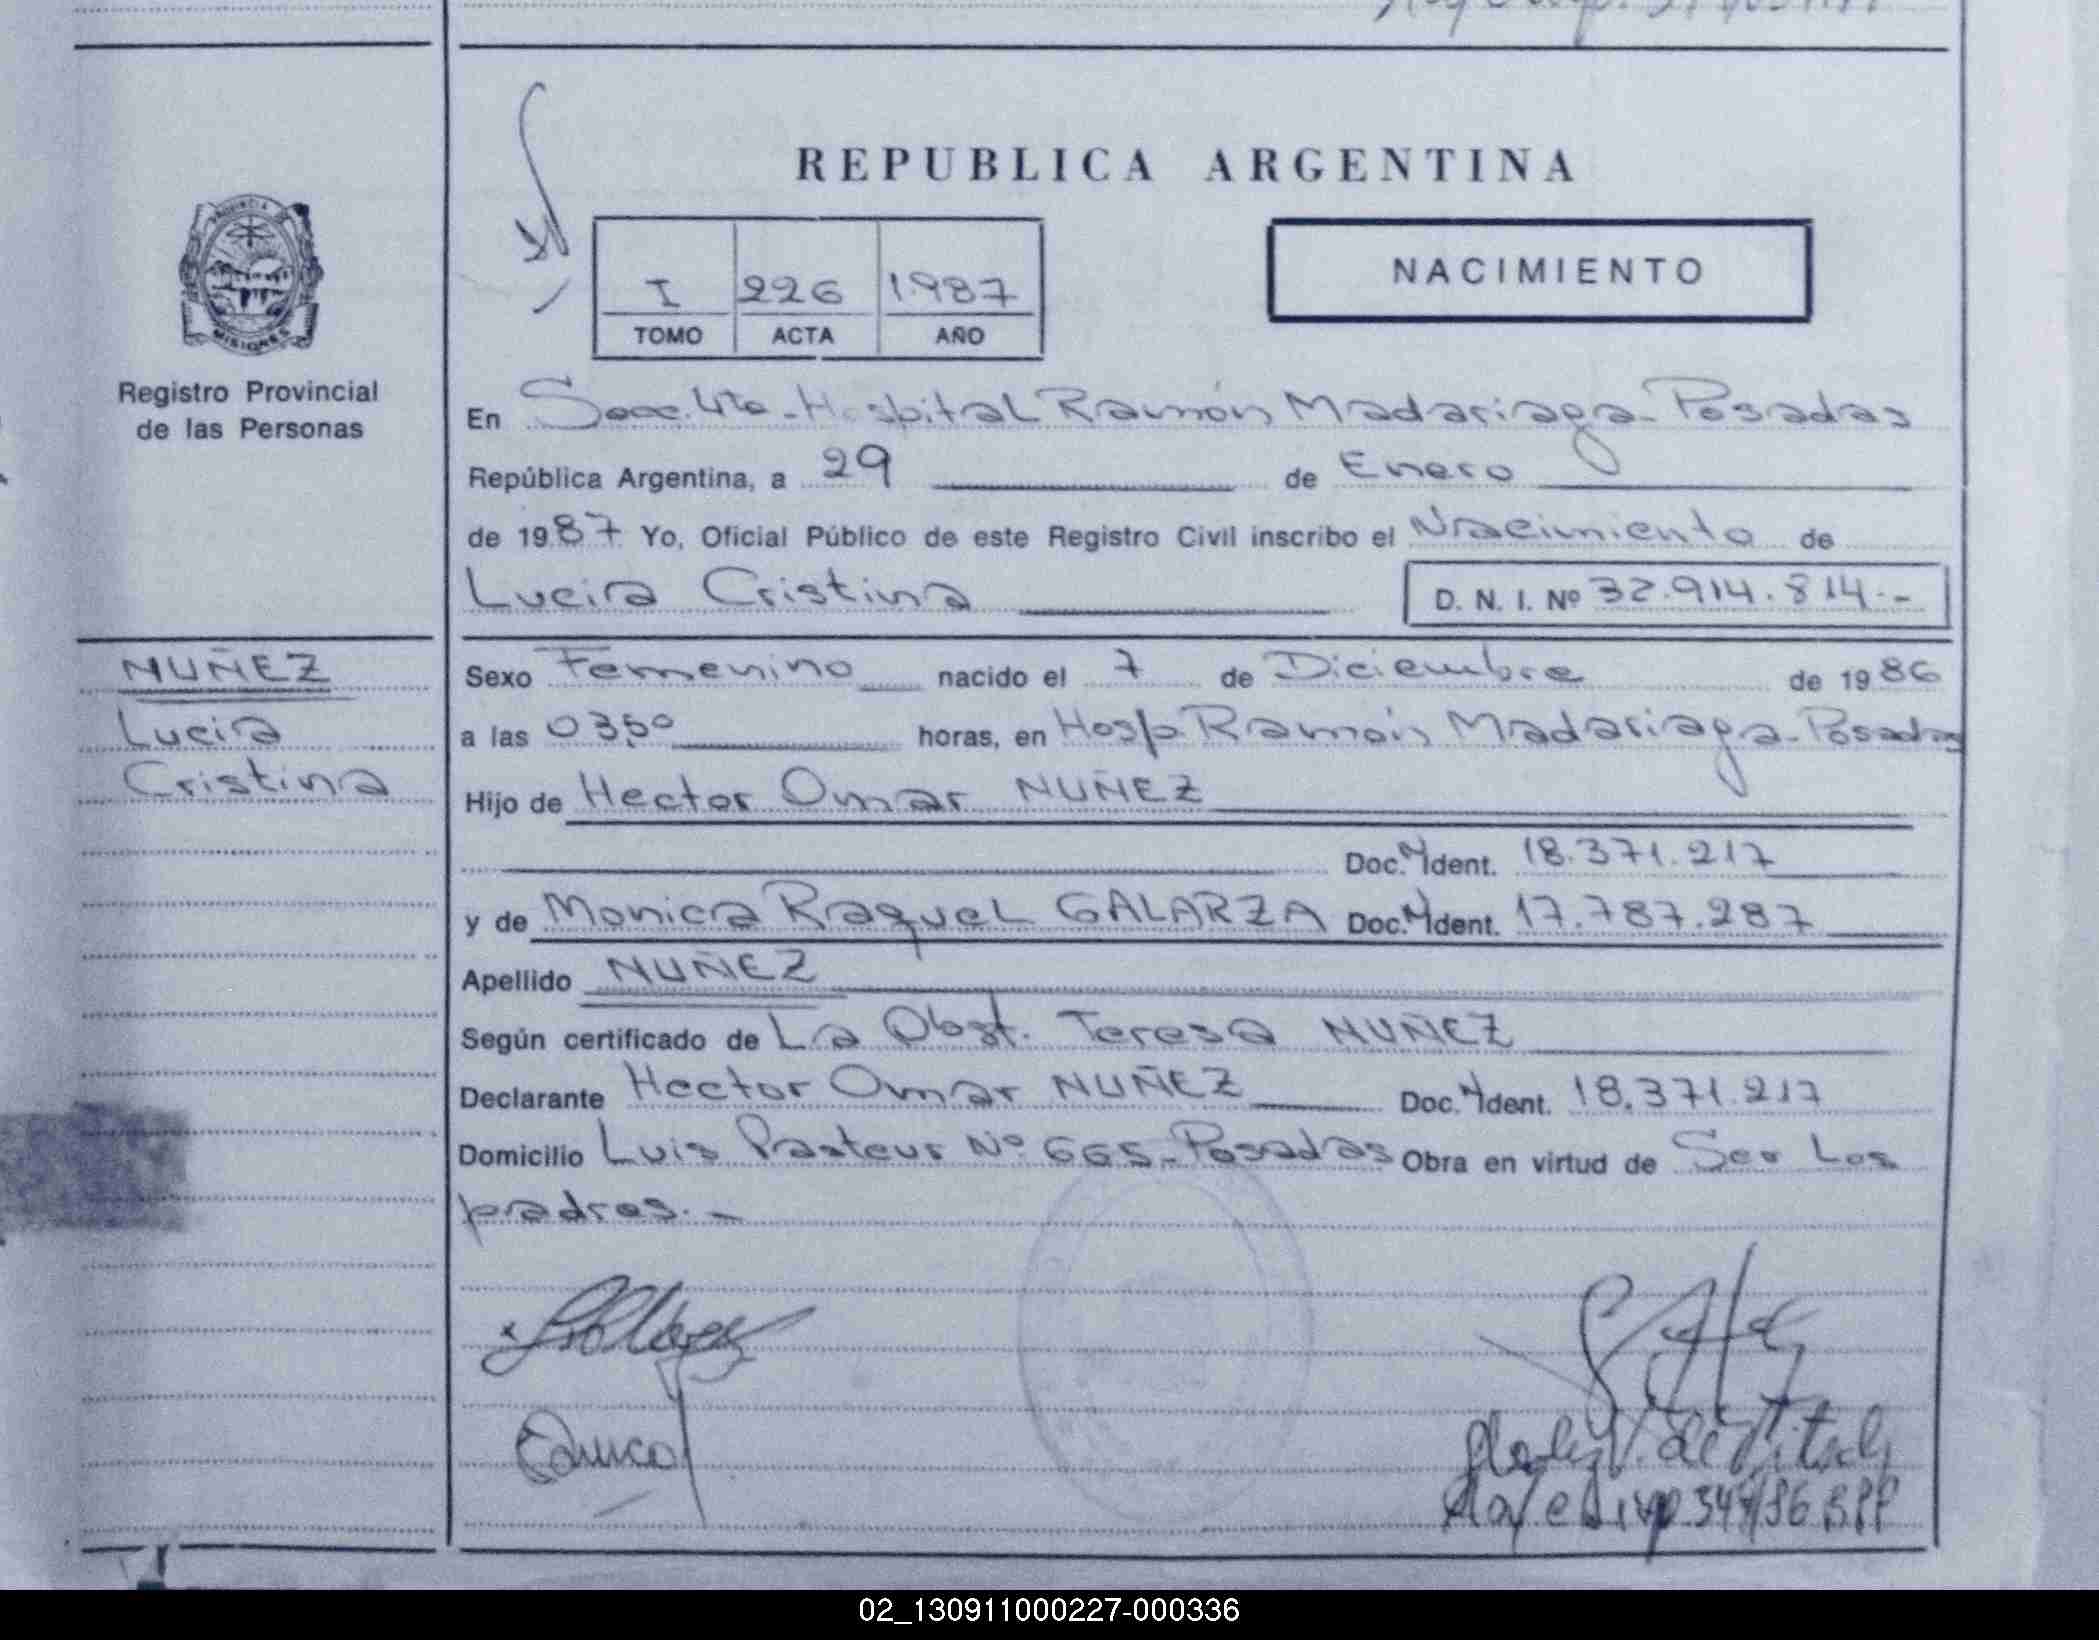 REPUBLICA ARGENTINA
PROVINCIA DE
MISIONES
Registro Provincial
de las Personas
I 226 1987
TOMO ACTA AÑO
NACIMIENTO
En Secc. 4ta - Hospital Ramón Madariaga - Posadas
República Argentina, a 29 de Enero
de 1987 Yo, Oficial Público de este Registro Civil inscribo el Nacimiento de
Lucia Cristina D. N. I. Nº 32.914.814.-
NUÑEZ
Lucia
Cristina
Sexo Femenino nacido el 7 de Diciembre de 1986
a las 03,50 horas, en Hosp. Ramón Madariaga - Posadas
Hijo de Hector Omar NUÑEZ
Doc. N Ident. 18.371.217
y de Monica Raquel GALARZA Doc. N Ident. 17.787.287
Apellido NUÑEZ
Según certificado de La Obst. Teresa NUÑEZ
Declarante Hector Omar NUÑEZ Doc. N Ident. 18.371.217
Domicilio Luis Pasteur Nº 665 - Posadas Obra en virtud de Ser Los
padres. -
02_130911000227-000336